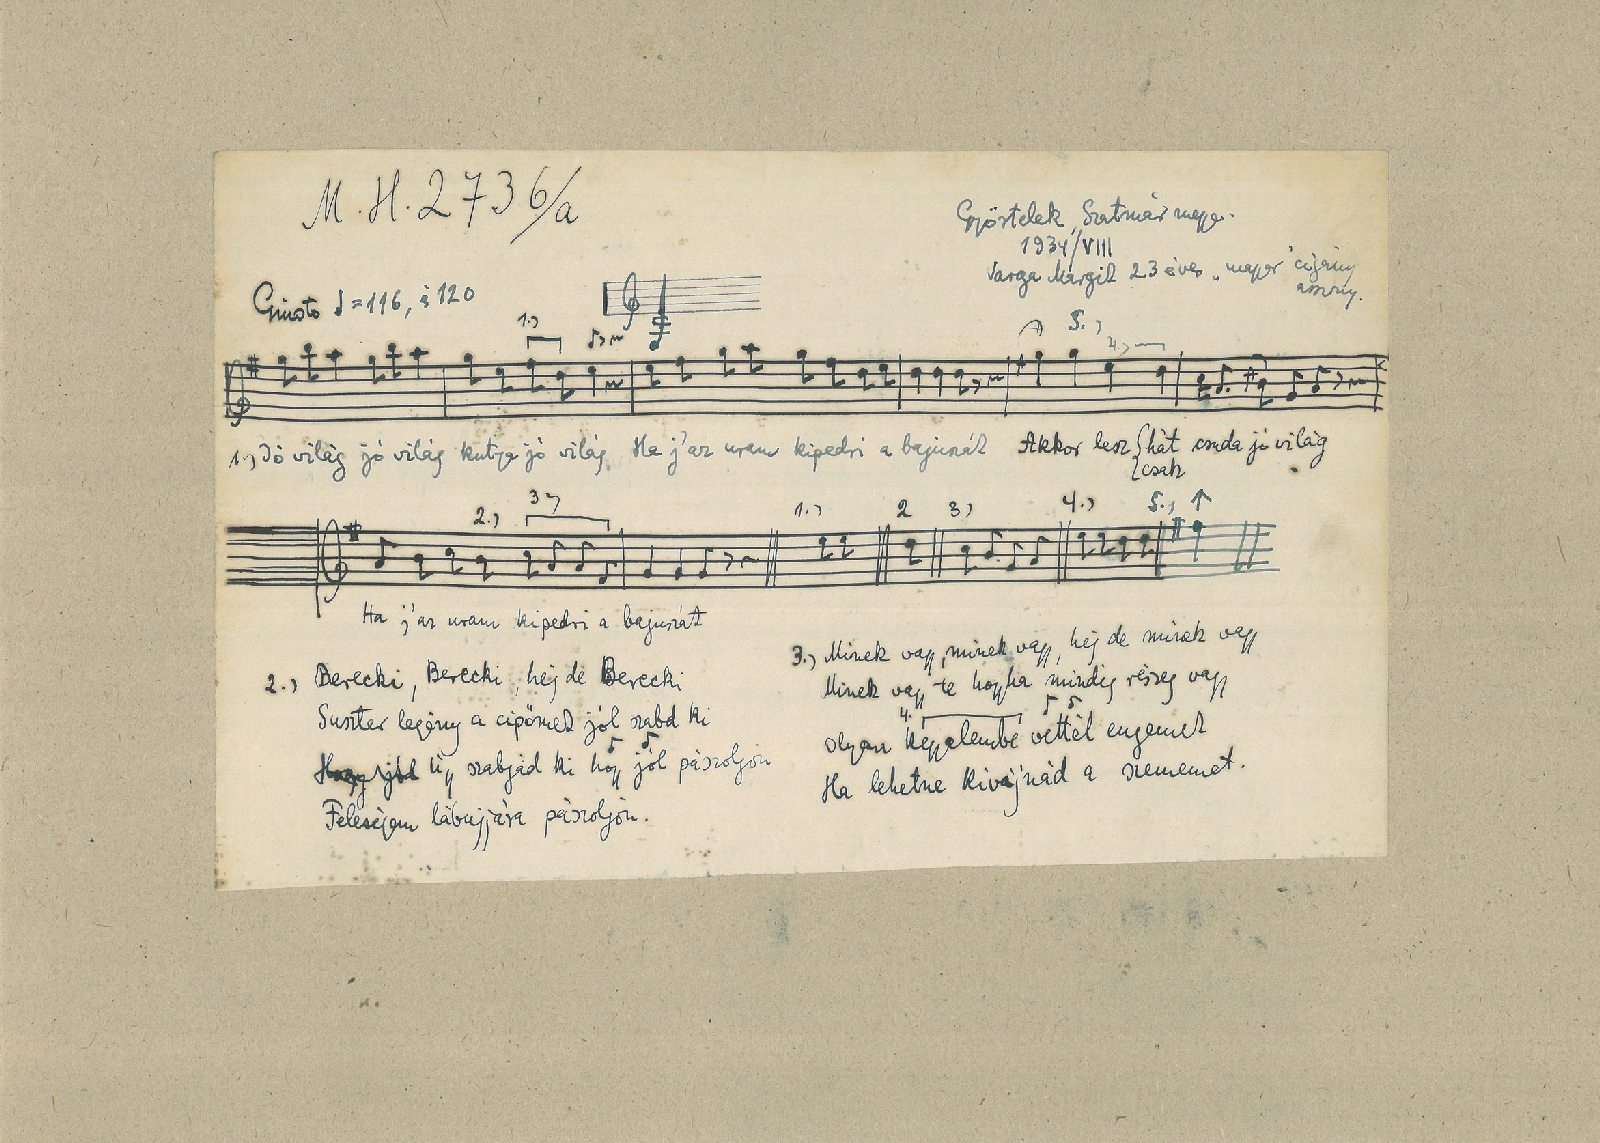 M.H.2736/a
Győrtelek, Szatmár megye.
1934/VIII
Varga Margit 23 éves „magyar" cigány
asszony.
Giusto ♩=116, é 120
1.)
5.)
4.)
1.) Jó világ jó világ kutya jó világ Ha j'az uram kipedri a bajuszát Akkor lesz {hát csuda jó világ
{csak
2.) 3.) 1.) 2 3) 4.) 5.) ↑
Ha j'az uram kipedri a bajuszát
2.) Berecki, Berecki, hej de Berecki
Suszter legény a cipőmet jól szabd ki
úgy szabjád ki hogy jól pászoljon
Feleségem lábujjára pászoljon.
3.) Minek vagy, minek vagy, hej de minek vagy
Minek vagy te hogyha mindég részeg vagy
4.
olyan képpelembe vettél engemet
Ha lehetne kivájnád a szememet.